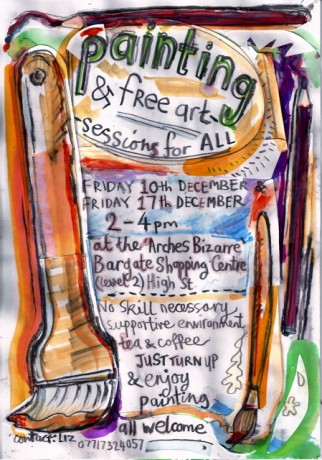 painting
& free art
sessions for ALL
FRIDAY 10th DECEMBER &
FRIDAY 17th DECEMBER
2-4pm
at the Arches Bizarre
Bargate Shopping Centre
(level 2) High St.
No skill necessary
supportive environment
tea & coffee
JUST TURN UP
& enjoy
painting
all welcome
contact: LIZ
07717324057